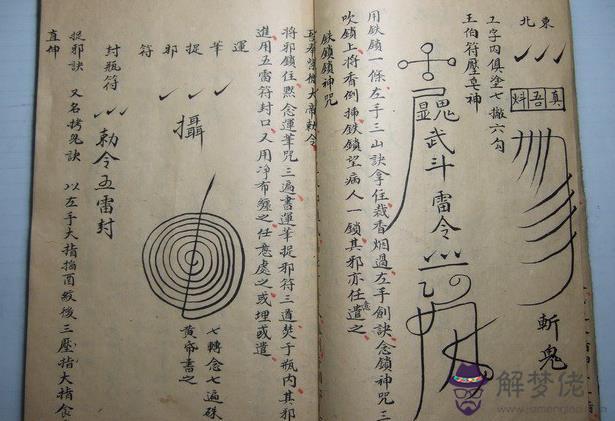 東北
工字内俱塗七撇六勾
王伯符壓皂神
真吾
斬鬼
武斗雷令
用鉄鎖一條左手三山訣拿住裁香烟過左手劍訣念鎖神咒三
吹鎖上將香倒掃鉄鎖望病人一鎖其邪亦任意遣之
鉄鎖鎖神咒
大帝勅令
將邪鎖住黙念運筆咒三遍書運筆捉邪符三道焚于瓶内其邪
進用五雷符封口又用净布纏之任意處之或埋或遣
運筆捉邪符
攝
七轉念七遍硃
黄帝書之
封瓶符
勅令五雷封
捉邪訣 又名拷鬼訣 以左手大指掐酉紋後三壓指大指食
直伸
解梦佬
www.jiemenglao.com